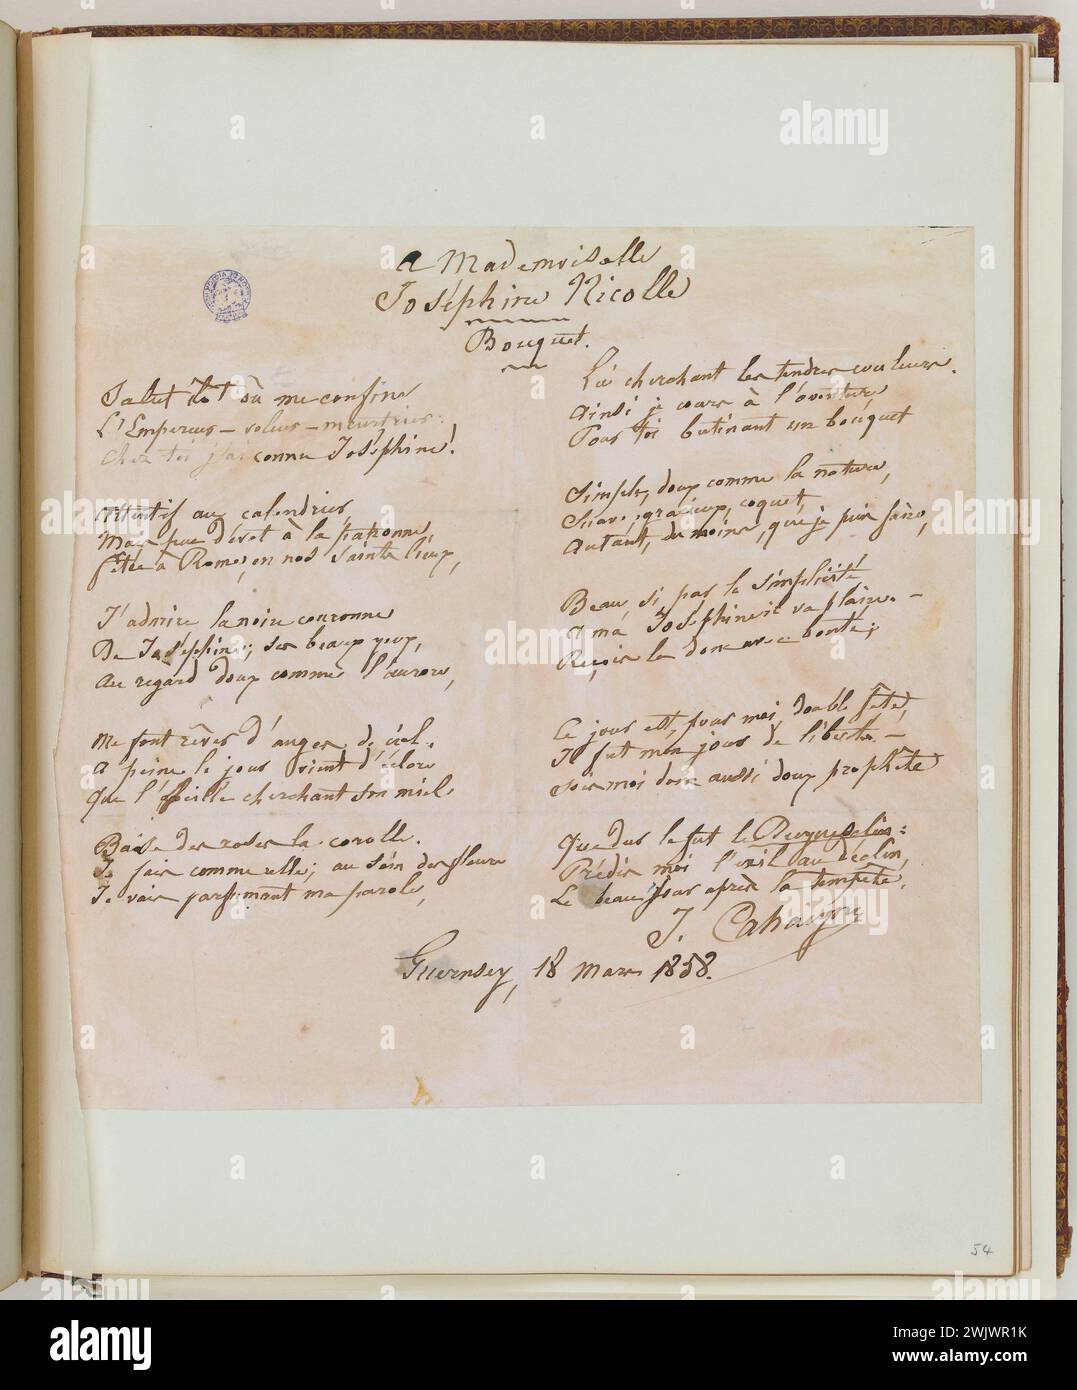 A Mademoiselle
Joséphine Nicolle
Bouquet.
Salut îlot où me confine
L'Empereur – voleur – meurtrier:
Chez toi j'ai connu Joséphine!
Attentif au calendrier,
Mais peu dévot à la patronne,
fêtée à Rome, en nos saints lieux,
J'admire la noire couronne
De Joséphine; ses beaux yeux,
Au regard doux comme l'aurore,
Me font rêver d'anges, de ciel.
A peine le jour vient d'éclore
Que l'abeille cherchant son miel
Baise des roses la corolle.
Je fais comme elle; au sein des fleurs
Je vais parfumant ma parole,
Lui cherchant les tendres couleurs.
Ainsi je cours à l'aventure,
Pour toi butinant un bouquet
Simple, doux comme la nature,
Suave, gracieux, coquet,
Autant, du moins, que je puis faire,
Beau, si par la simplicité
Il ma Joséphine va plaire. –
Reçois le donc avec bonté;
Ce jour est, pour moi, double fête,
Il fut mon jour de liberté. –
Sois moi donc aussi doux prophète
Que dus le fut le Duguesclin:
Prédis moi l'exil au déclin,
Le beau jour après la tempête.
J. Cahaigne
Guernsey, 18 Mars 1858.
54
alamy
Image ID: 2WJWR1K
www.alamy.com